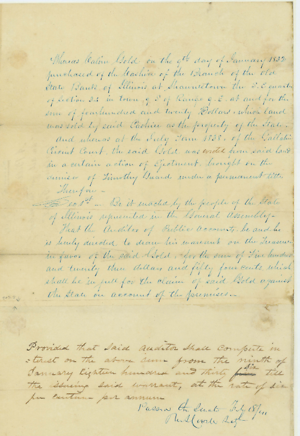 Whereas Calvin Gold on the 9th day of January 1832
purchased of the Cashier of the Branch of the old
State Bank of Illinois at Shawneetown the S.E. quarter
of section 33 in town 9 S of Range 9 E at and for the
sum of four hundred and twenty Dollars which land
was sold by said Cashier as the property of the State
and whereas at the July Term 1838 of the Gallatin
Circuit Court the said Gold was this said land
in a certain action of Ejectment brought on the
of Timothy Guard under a paramount title
Therefore
Sec 1st Be it enacted by the people of the State
of Illinois represented in the General Assembly
That the Auditor of Public accounts be and he
is hereby directed to draw his warrant on the Treasurer
in favor of the said Gold for the sum of Five hundred
and twenty two dollars and fifty four cents which
shall be in full for the claim of said Gold against
the State on account of the
Provided that said Auditor shall compute in
terest on the above sum from the ninth of
January eighteen hundred and thirty six till
the issuing said warrant, at the rate of six
per centum per annum
Passed the Feb